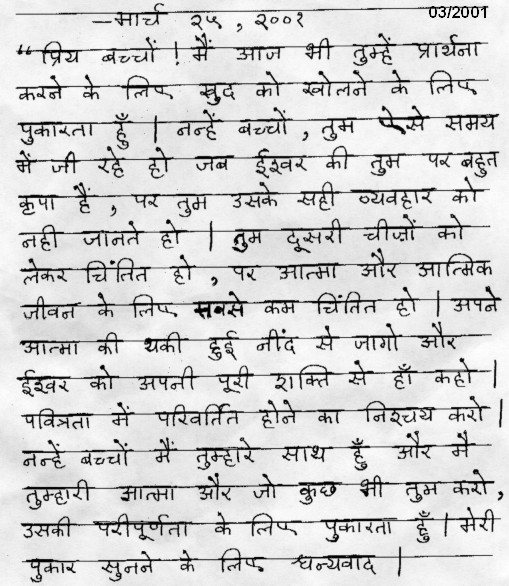 03/2001
– मार्च २५, २००१
“प्रिय बच्चों ! मैं आज भी तुम्हें प्रार्थना
करने के लिए खुद को खोलने के लिए
पुकारता हूँ | नन्हें बच्चों, तुम ऐसे समय
में जी रहे हो जब ईश्वर की तुम पर बहुत
कृपा हैं, पर तुम उसके सही व्यवहार को
नही जानते हो | तुम दूसरी चीज़ों को
लेकर चिंतित हो, पर आत्मा और आत्मिक
जीवन के लिए सबसे कम चिंतित हो | अपने
आत्मा की थकी हुई नींद से जागो और
ईश्वर को अपनी पूरी शक्ति से हाँ कहो |
पवित्रता में परिवर्तित होने का निश्चय करो |
नन्हें बच्चों मैं तुम्हारे साथ हूँ और मै
तुम्हारी आत्मा और जो कुछ भी तुम करो,
उसकी परीपूर्णता के लिए पुकारता हूँ | मेरी
पुकार सुनने के लिए धन्यवाद |